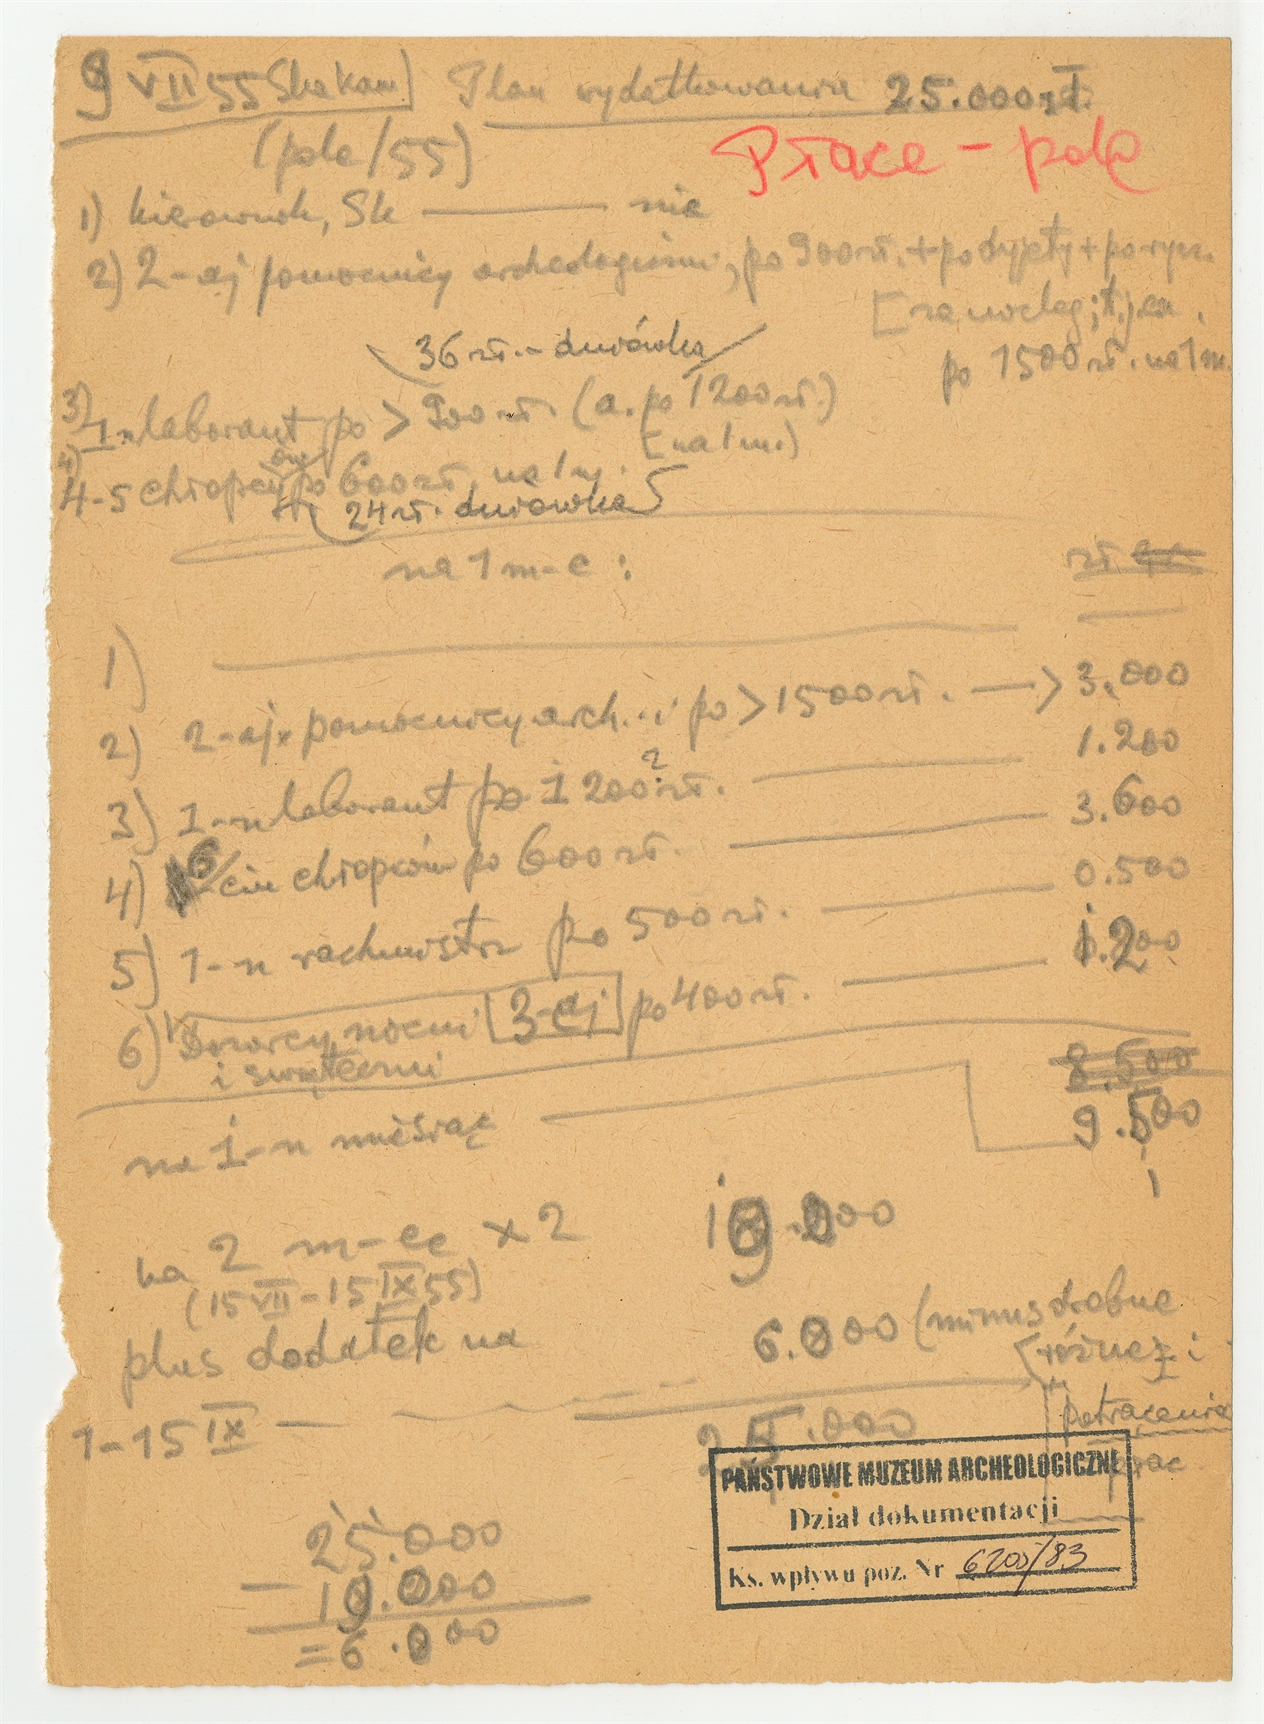 9 VII 55 Plan wydatkowania 25.000 zł.
(pole/55)
Płace - pole
1) kierownik, Sk — nie
2) 2-aj pomocnicy archeologiczni, po 900 zł. + po dyjety + po rycz.
[za nocleg; t.j. ca.
po 1500 zł. na 1 m.
36 zł. - dniówka
3) 1-n laborant po > 900 zł. (a. po 1200 zł.)
[na 1 m.)
4) 4-5 chłopcy po 600 zł. na 1 m.
24 zł. dniówka
na 1 m-c :
zł
1) —
2) 2-aj pomocnicy arch. po > 1500 zł. —> 3.000
3) 1-n laborant po 1200? zł. — 1.200
4) 6/ciu chłopców po 600 zł. — 3.600
5) 1-n rachmistrz po 500 zł. — 0.500
6) Dozorcy nocni 3-aj po 400 zł. — 1.200
i świąteczni
8.500
na 1-n miesiąc — 9.500
na 2 m-ce x 2 19.000
(15 VII - 15 IX 55)
plus dodatek na 6.000 (minus drobne
[różne i
1-15 IX — 25.000 potrącenia
prac
PAŃSTWOWE MUZEUM ARCHEOLOGICZNE
Dział dokumentacji
Ks. wpływu poz. Nr 6200/83
25.000
- 19.000
= 6.000